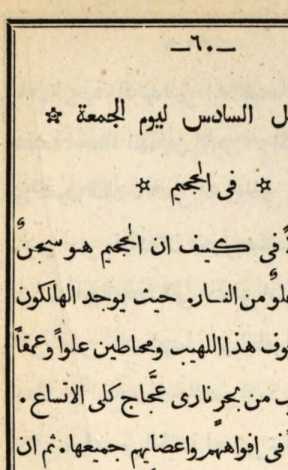 ـ٦٠ـ
ل السادس ليوم الجمعة ☆
☆ فى الجحيم ☆
فى كيف ان الجحيم هو سجنٌ
من النار. حيث يوجد الهالكون
وف هذا اللهيب ومحاطين علواً وعمقاً
ب من بحر نارى عجَّاج كلى الاتساع.
فى افواههم واعضايهم جميعها. ثم ان